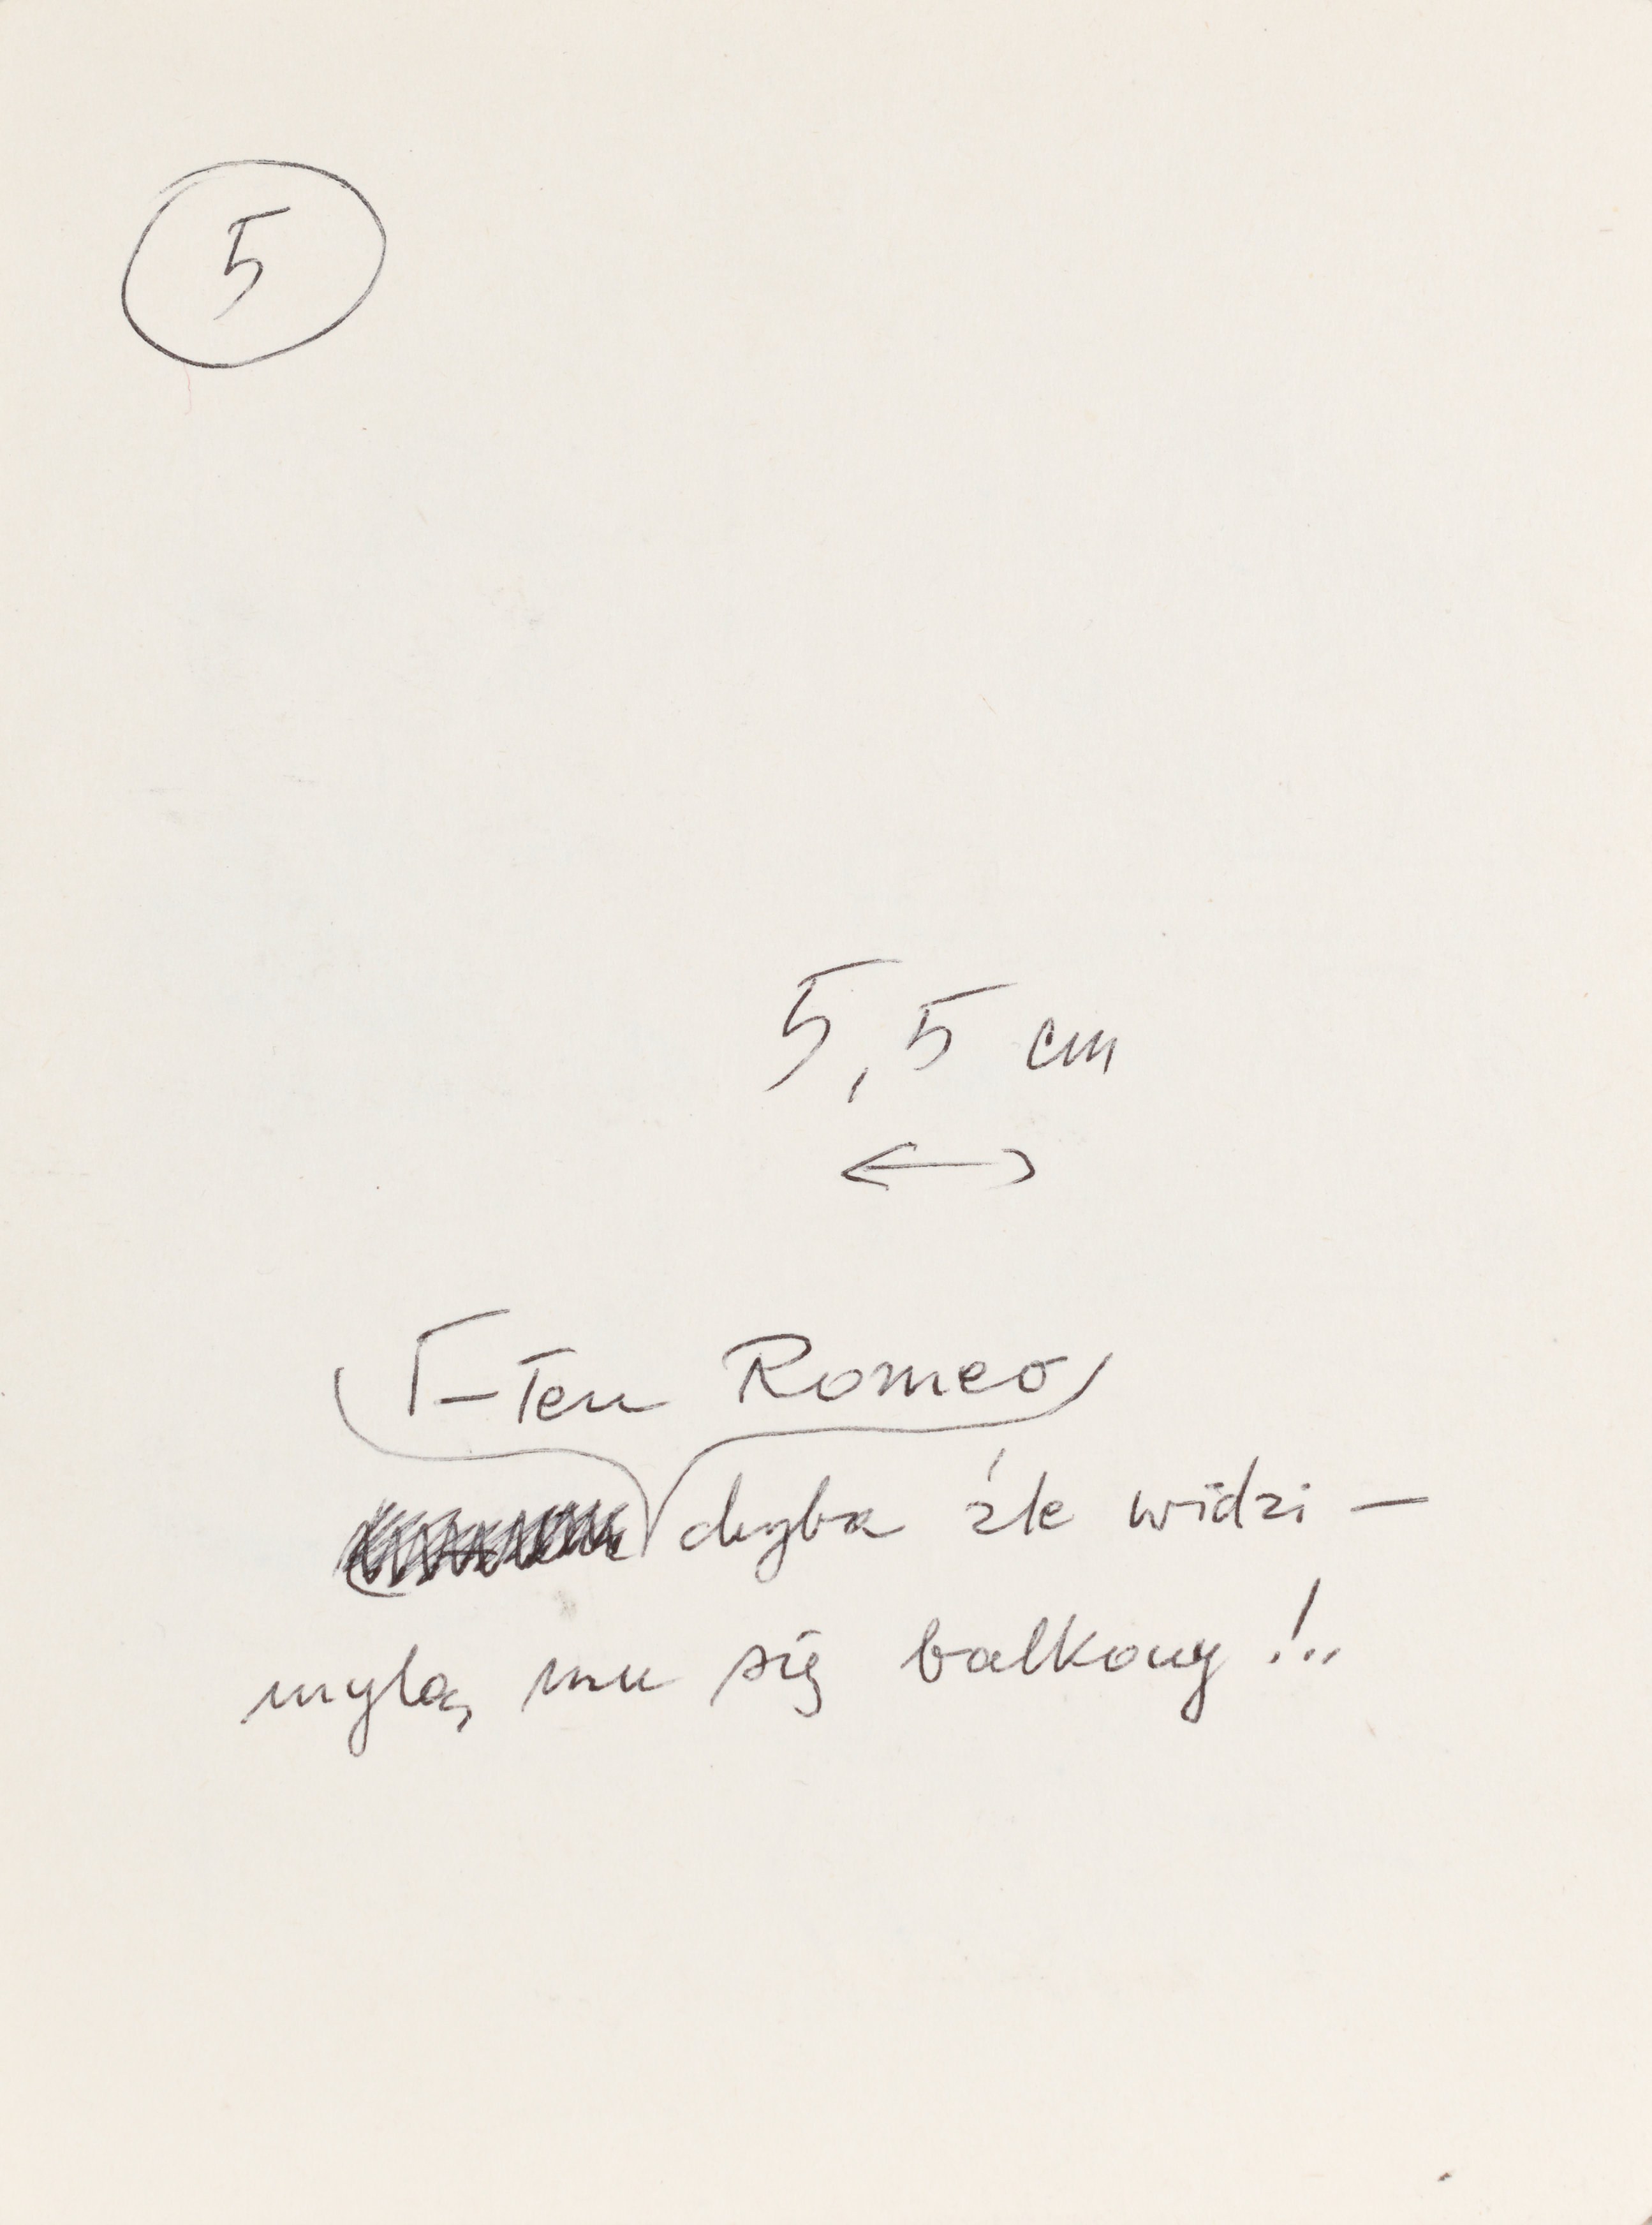 5
5,5 cm
T-Ten Romeo
chyba źle widzi —
mylą mu się balkony!..